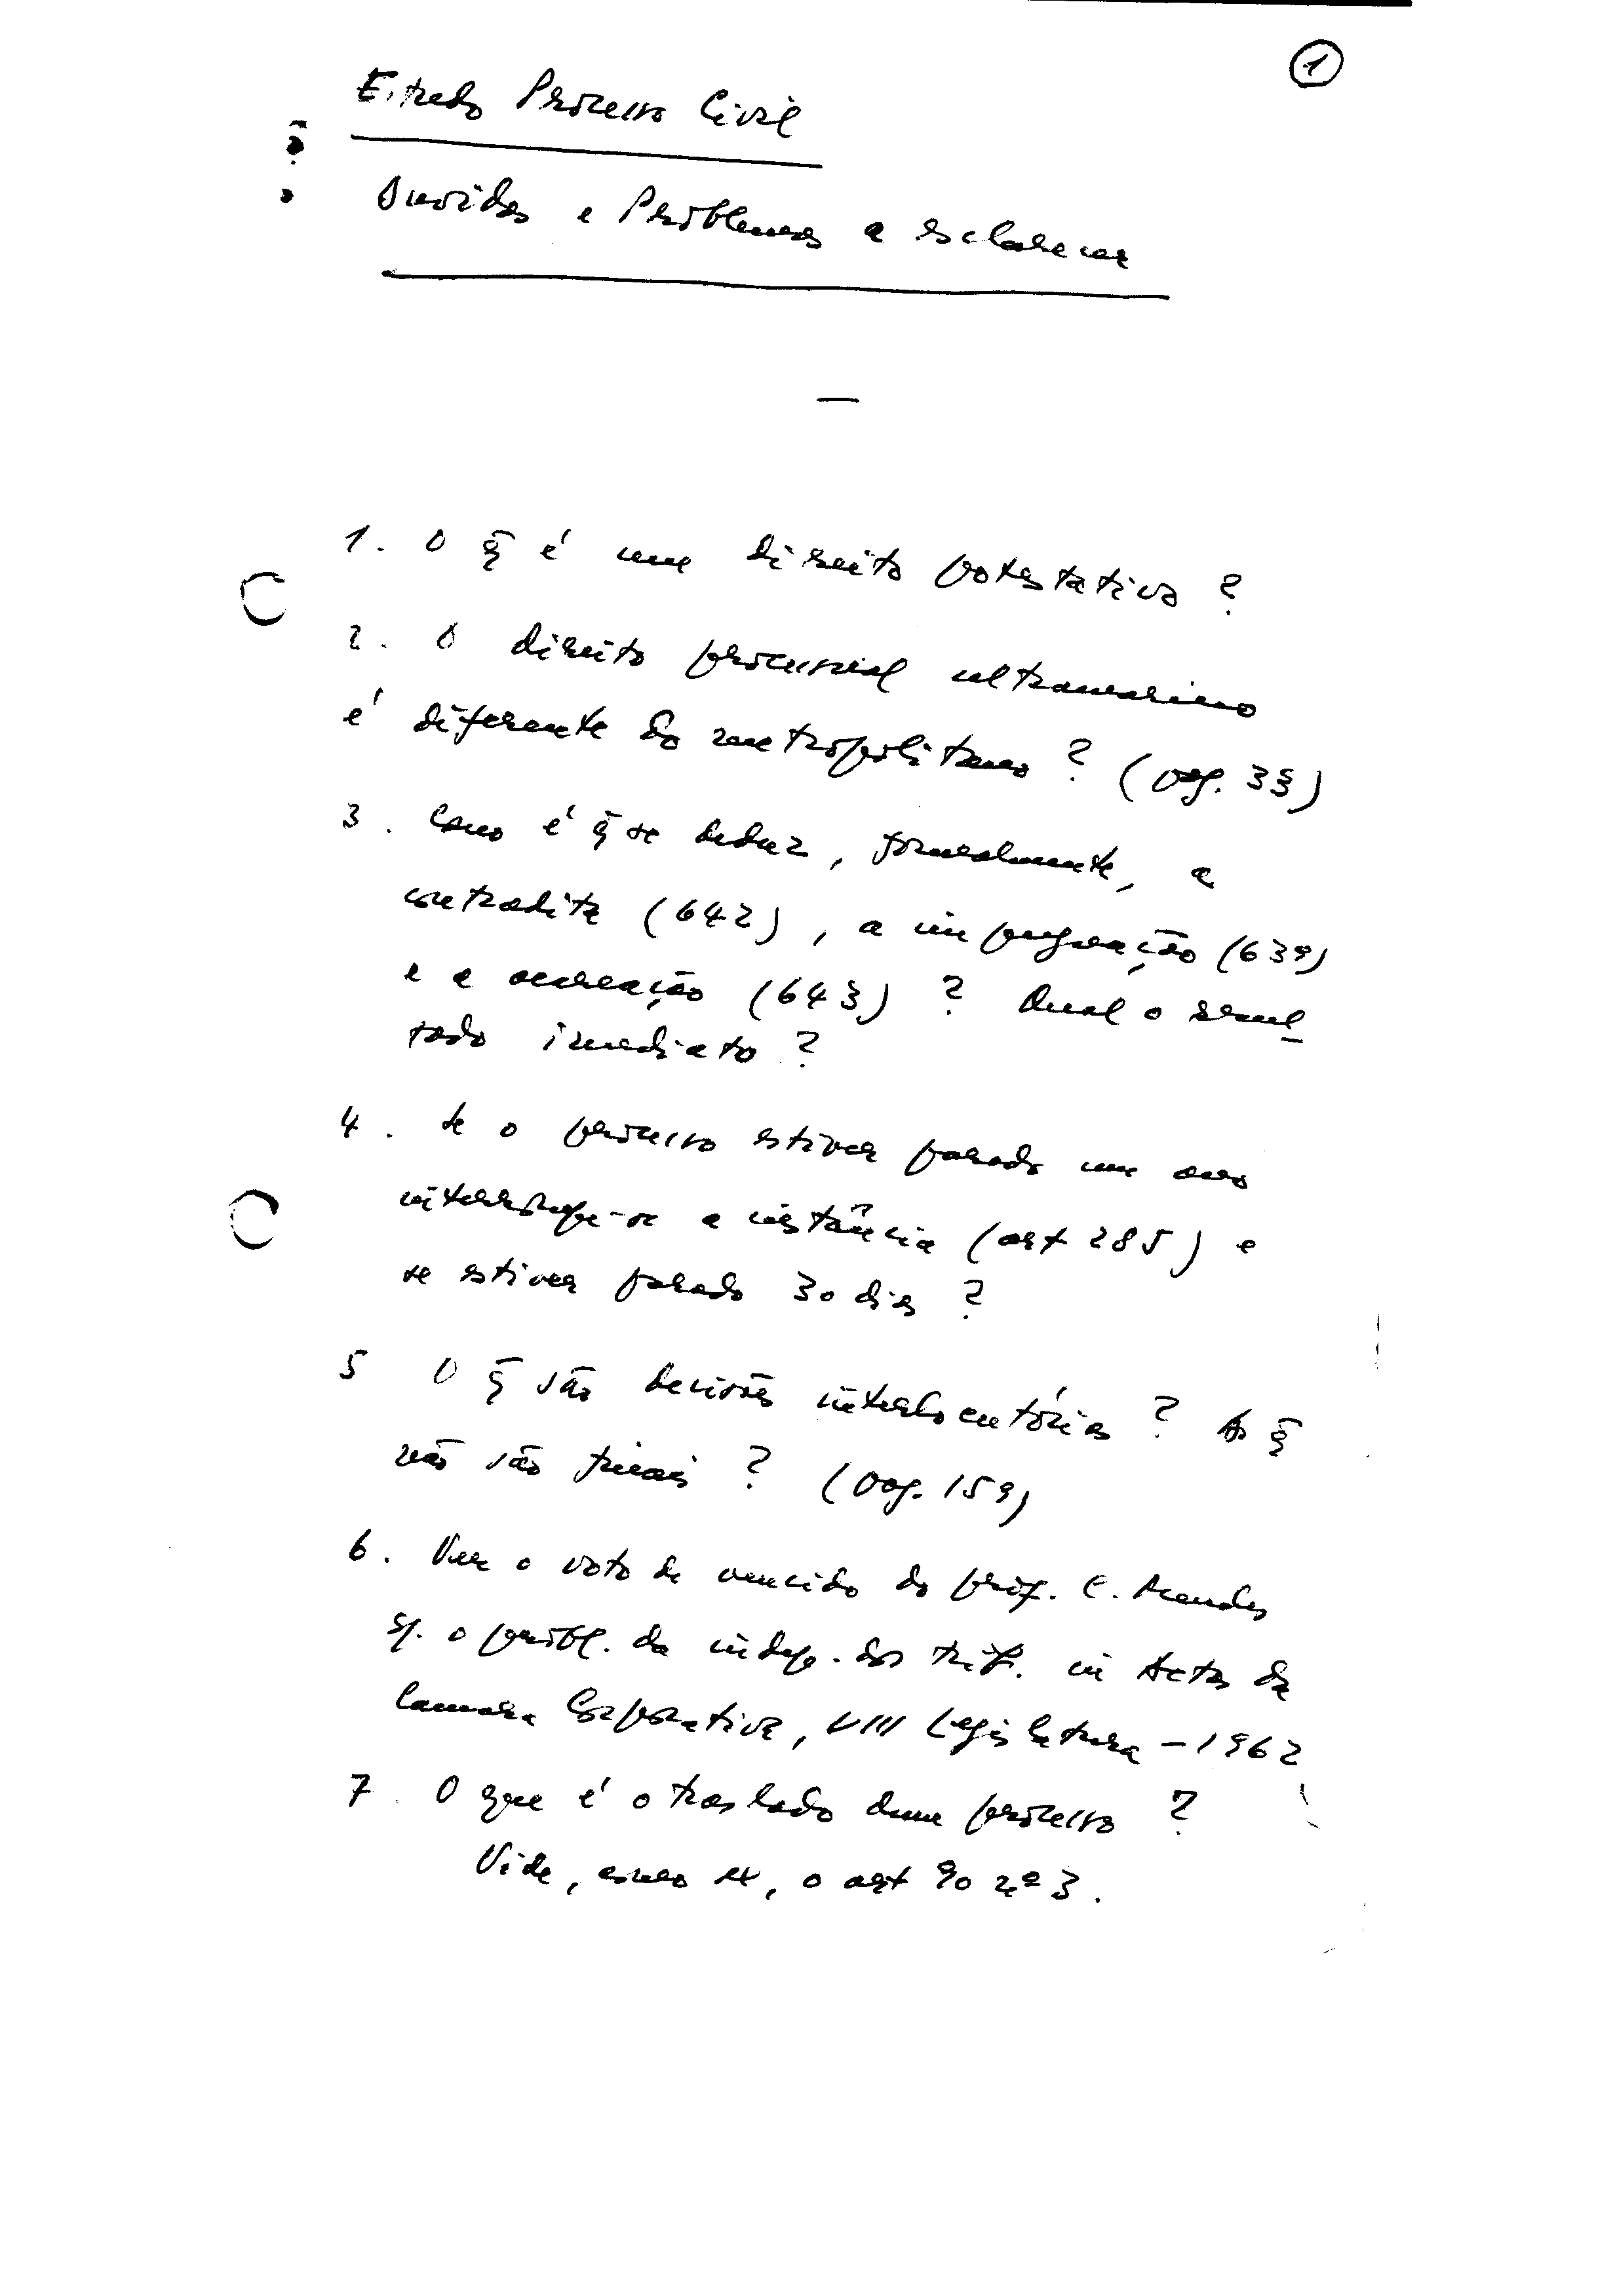 1
Estudo Processo Civil
Duvidas e Problemas a esclarecer
1. O q̃ é um direito potestativo ?
2. O direito processual ultramarino
é diferente do metropolitano ? (pag. 33)
3. Como é q̃ se deduz, formalmente, a
contradita (642), a impugnação (639)
e a acareação (643) ? Qual o resul
tado imediato ?
4. Se o processo estiver parado um ano
interrompe-se a instância (art 285) e
se estiver parado 30 dias ?
5 O q̃ são decisões interlocutórias ? As q̃
não são finais ? (pag. 159)
6. Ver o voto de vencido do prof. C. Mendes
s/. o probl. da indep. dos trib. in Actas da
Camara Corporativa, VIII Legislatura - 1962
7. O que é o traslado dum processo ?
Vide, como ex, o art 90 nº 3.